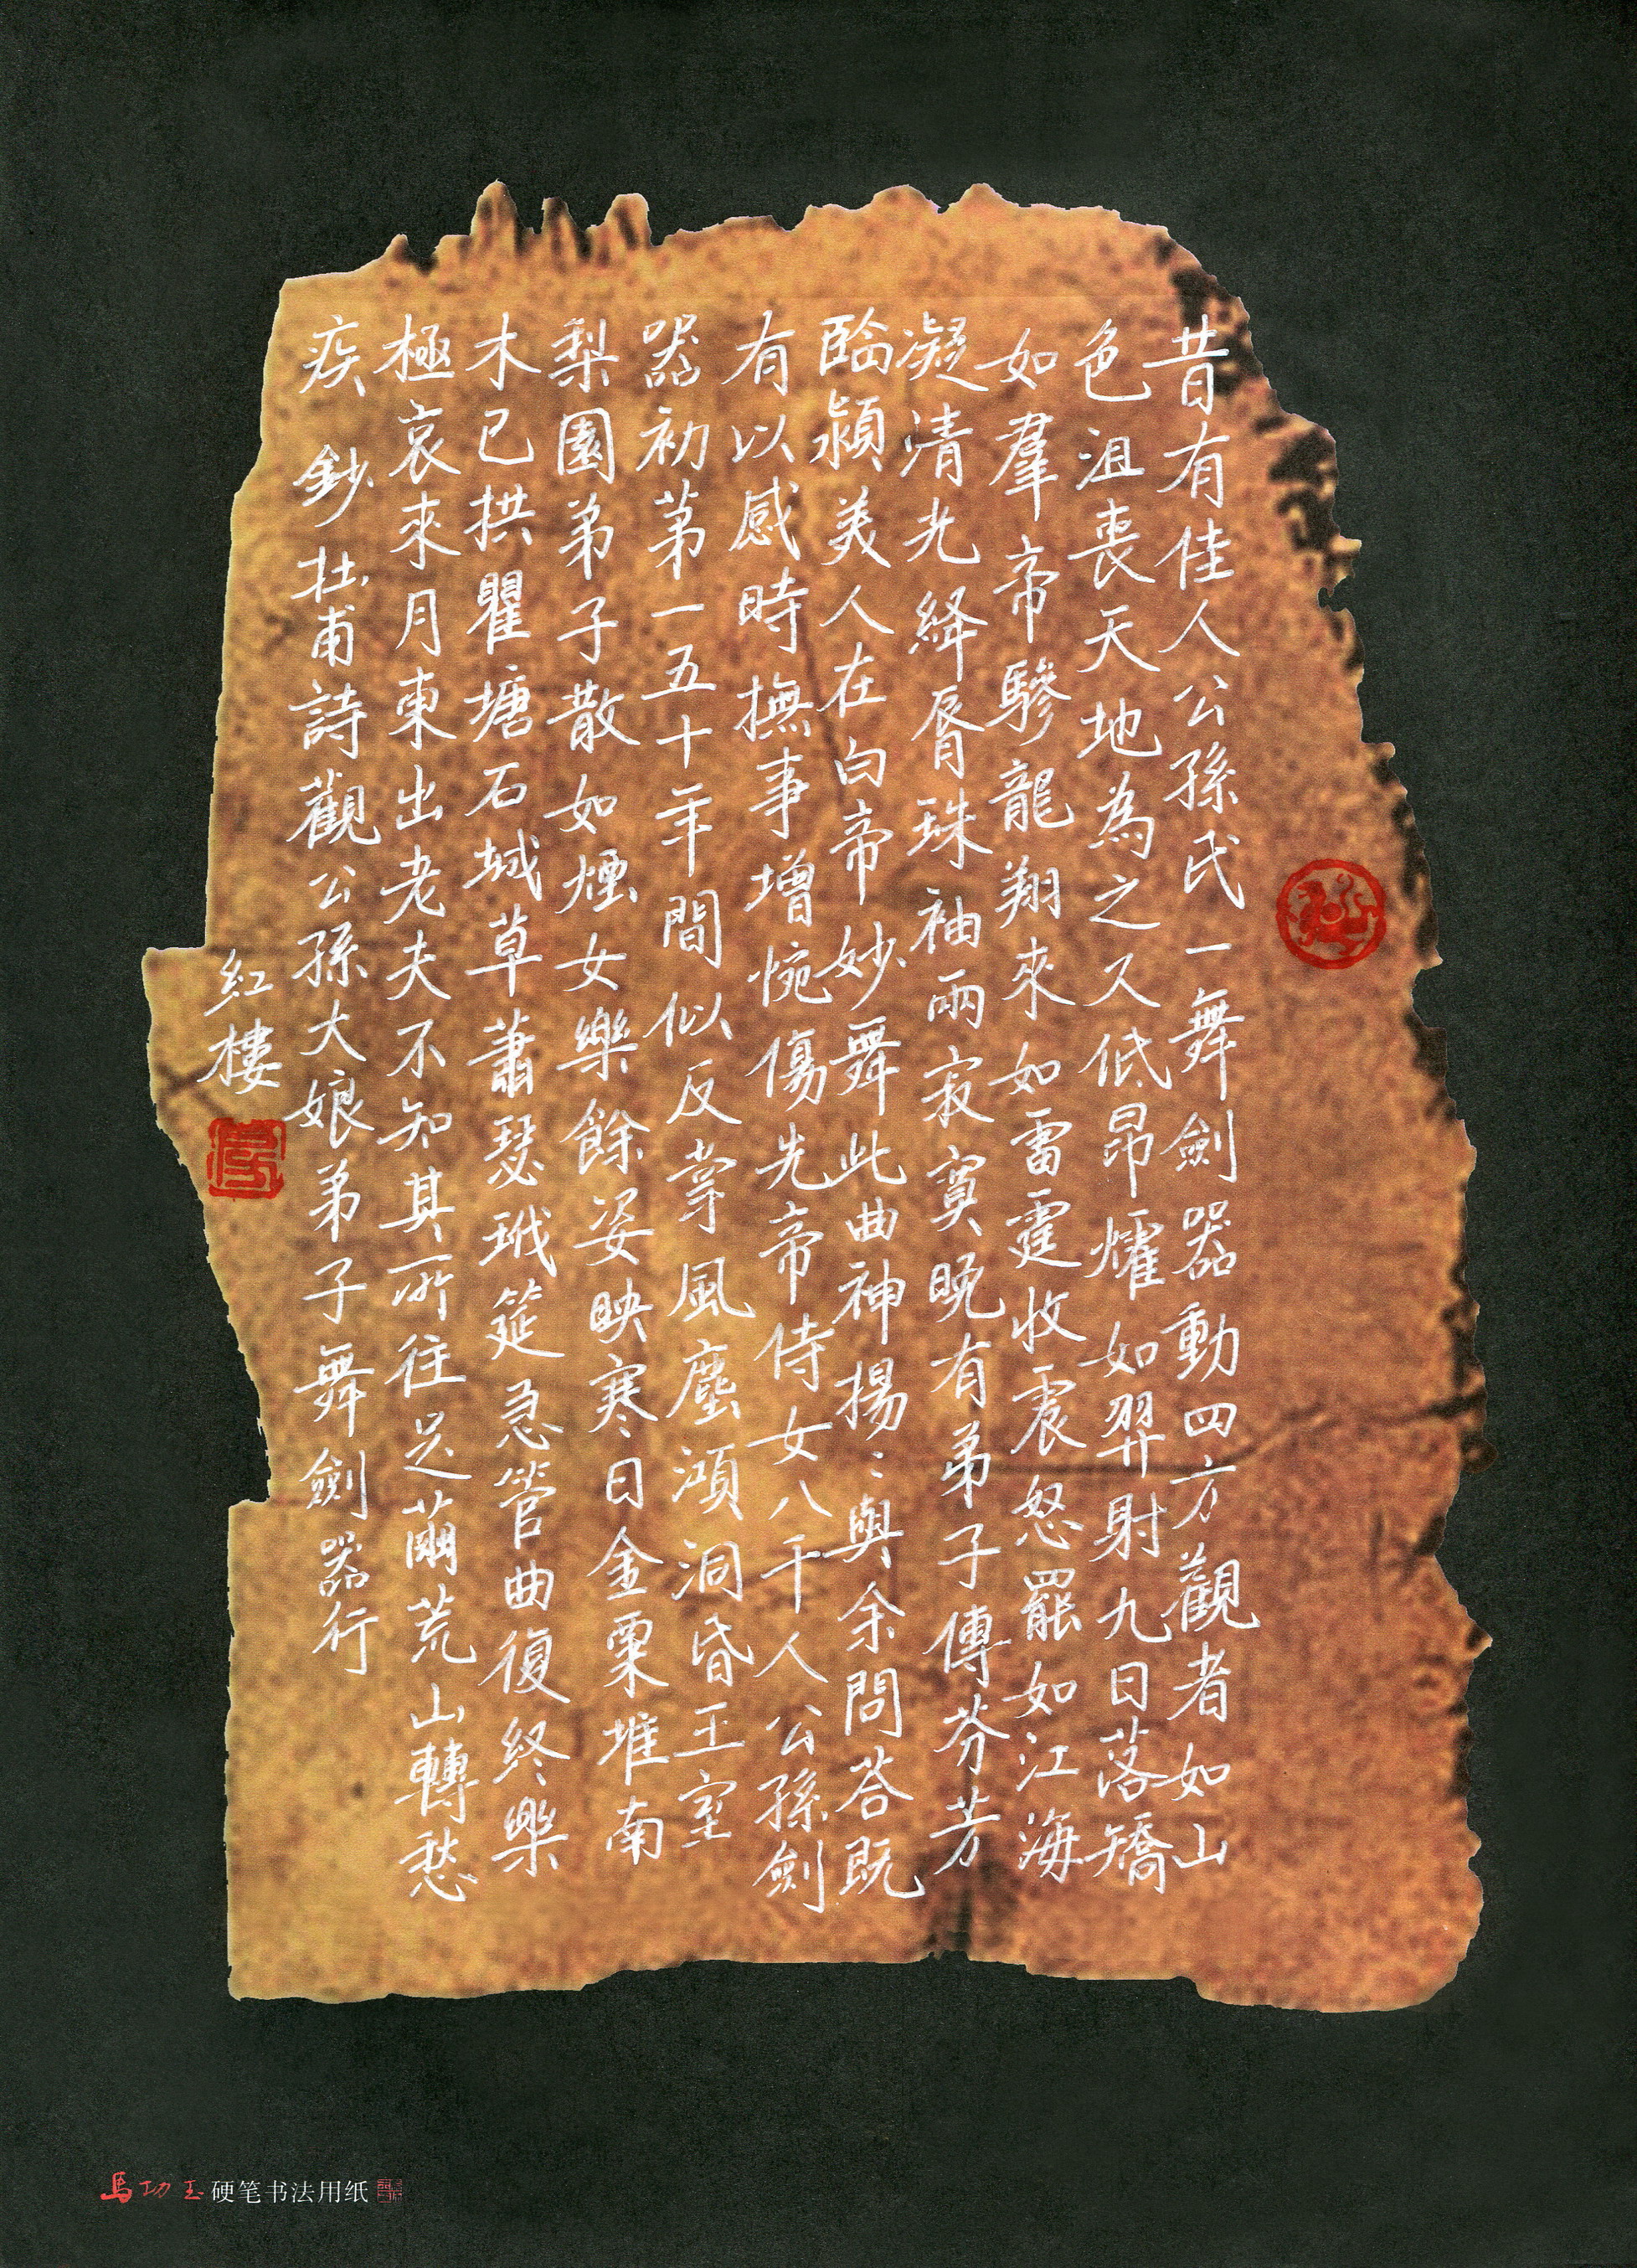 昔有佳人公孫氏一舞劍器動四方觀者如山
色沮喪天地為之久低昂㸌如羿射九日落矯
如羣帝驂龍翔來如雷霆收震怒罷如江海
凝清光絳脣珠袖兩寂寞晚有弟子傳芬芳
臨潁美人在白帝妙舞此曲神揚〻與余問答既
有以感時撫事增惋傷先帝侍女八千人公孫劍
器初第一五十年間似反掌風塵澒洞昏王室
梨園弟子散如煙女樂餘姿映寒日金粟堆南
木已拱瞿塘石城草蕭瑟玳筵急管曲復終樂
極哀來月東出老夫不知其所往足繭荒山轉愁
疾 鈔杜甫詩觀公孫大娘弟子舞劍器行
紅樓
馬功玉硬笔书法用纸